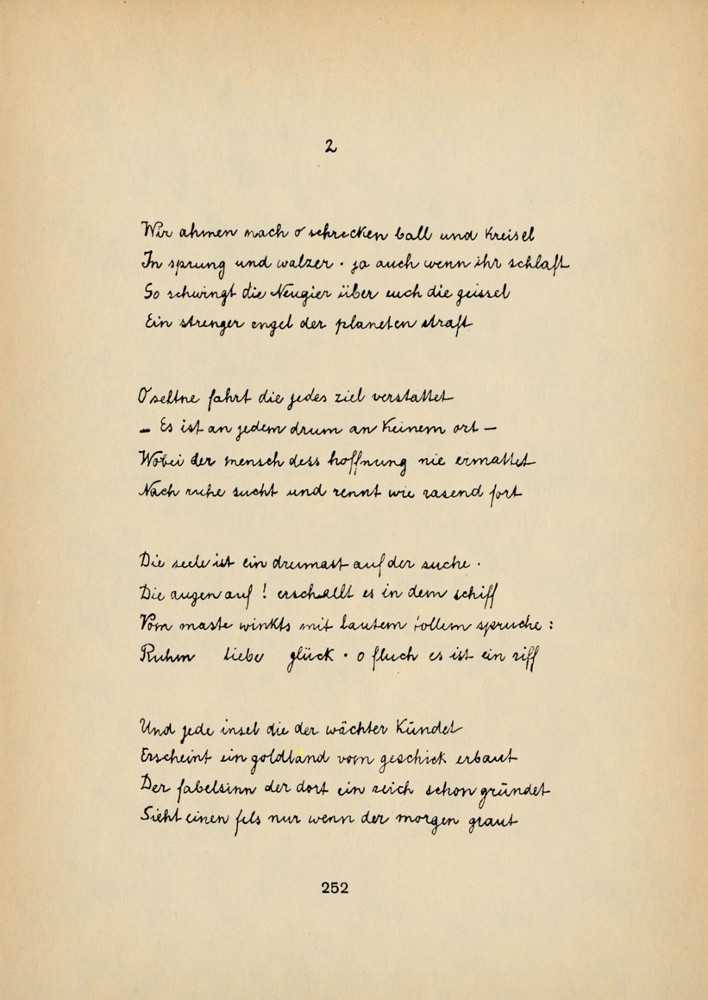 2
Wir ahmen nach o schrecken ball und kreisel
In sprung und walzer · ja auch wenn ihr schlaft
So schwingt die Neugier über euch die geissel
Ein strenger engel der planeten straft
O seltne fahrt die jedes ziel verstattet
– Es ist an jedem drum an keinem ort –
Wobei der mensch dess hoffnung nie ermattet
Nach ruhe sucht und rennt wie rasend fort
Die seele ist ein dreimast auf der suche ·
Die augen auf! erschallt es in dem schiff
Vom maste winkts mit lautem tollem spruche:
Ruhm liebe glück · o fluch es ist ein riff
Und jede insel die der wächter kündet
Erscheint ein goldland vom geschick erbaut
Der fabelsinn der dort ein reich schon gründet
Sieht einen fels nur wenn der morgen graut
252